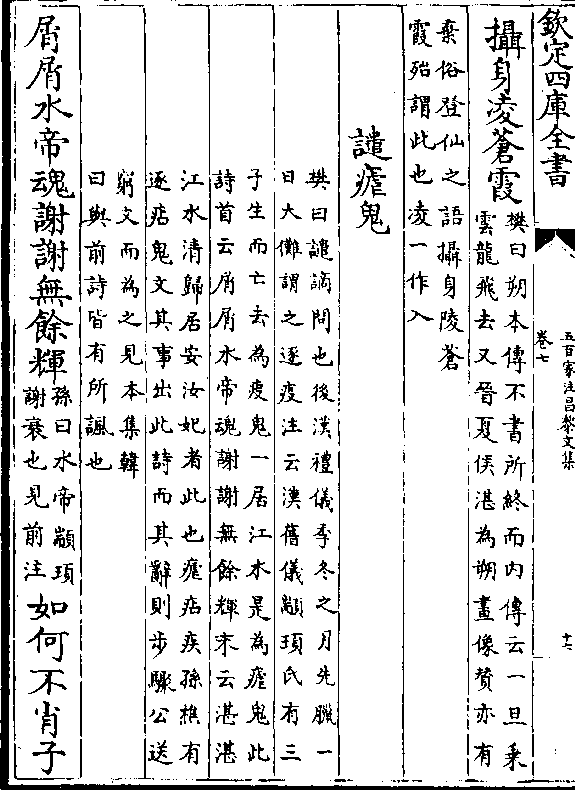 欽定四庫全書
五百家注昌黎文集
卷七
十七
攝身凌蒼霞
樊曰朔本傳不書所終而内傳云一旦乗
雲龍飛去又晉夏侯湛為朔畫像贊亦有
棄俗登仙之語攝身陵蒼
霞殆謂此也凌一作入
譴瘧鬼
樊曰譴謫問也後漢禮儀季冬之月先臘一
日大儺謂之逐疫注云漢舊儀顓頊氏有三
子生而亡去為疫鬼一居江水是為瘧鬼此
詩首云屑屑水帝魂謝謝無餘輝末云湛湛
江水清歸居安汝妃者此也瘧痁疾孫樵有
逐痁鬼文其事出此詩而其辭則步驟公送
窮文而為之見本集韓
曰與前詩皆有所諷也
屑屑水帝魂謝謝無餘輝
孫曰水帝顓頊
謝衰也見前注
如何不肖子